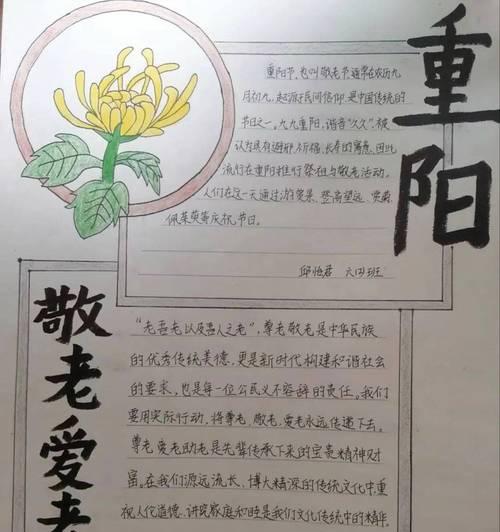 重阳
重阳节,也叫敬老节通常在农历九
月初九,起源于民间信仰,是中国传统的
节日之一。九九重阳,谐音“久久”,被
认为具有避邪、祈福、长寿的寓意,因此
流行在重阳推行祭祖与敬老活动。
人们在这一天通过游赏景、登高望远、赏菊、
佩茱萸等庆祝节日。
邱怡君 六四班
敬老爱老
“老吾老以及吾人之老”,尊老敬老是中华民族
的优秀传统美德,更是新时代构建和谐社会
的要求,也是每一位公民义不容辞的责任。我们
要用实际行动,将尊老、敬老、爱老永远传递下去。
尊老爱老助老是先辈传承下来的宝贵精神财
富。在我们源远流长、博大精深的传统文化中,重
视人伦道德、讲究家庭和睦是我们文化传统中的精华